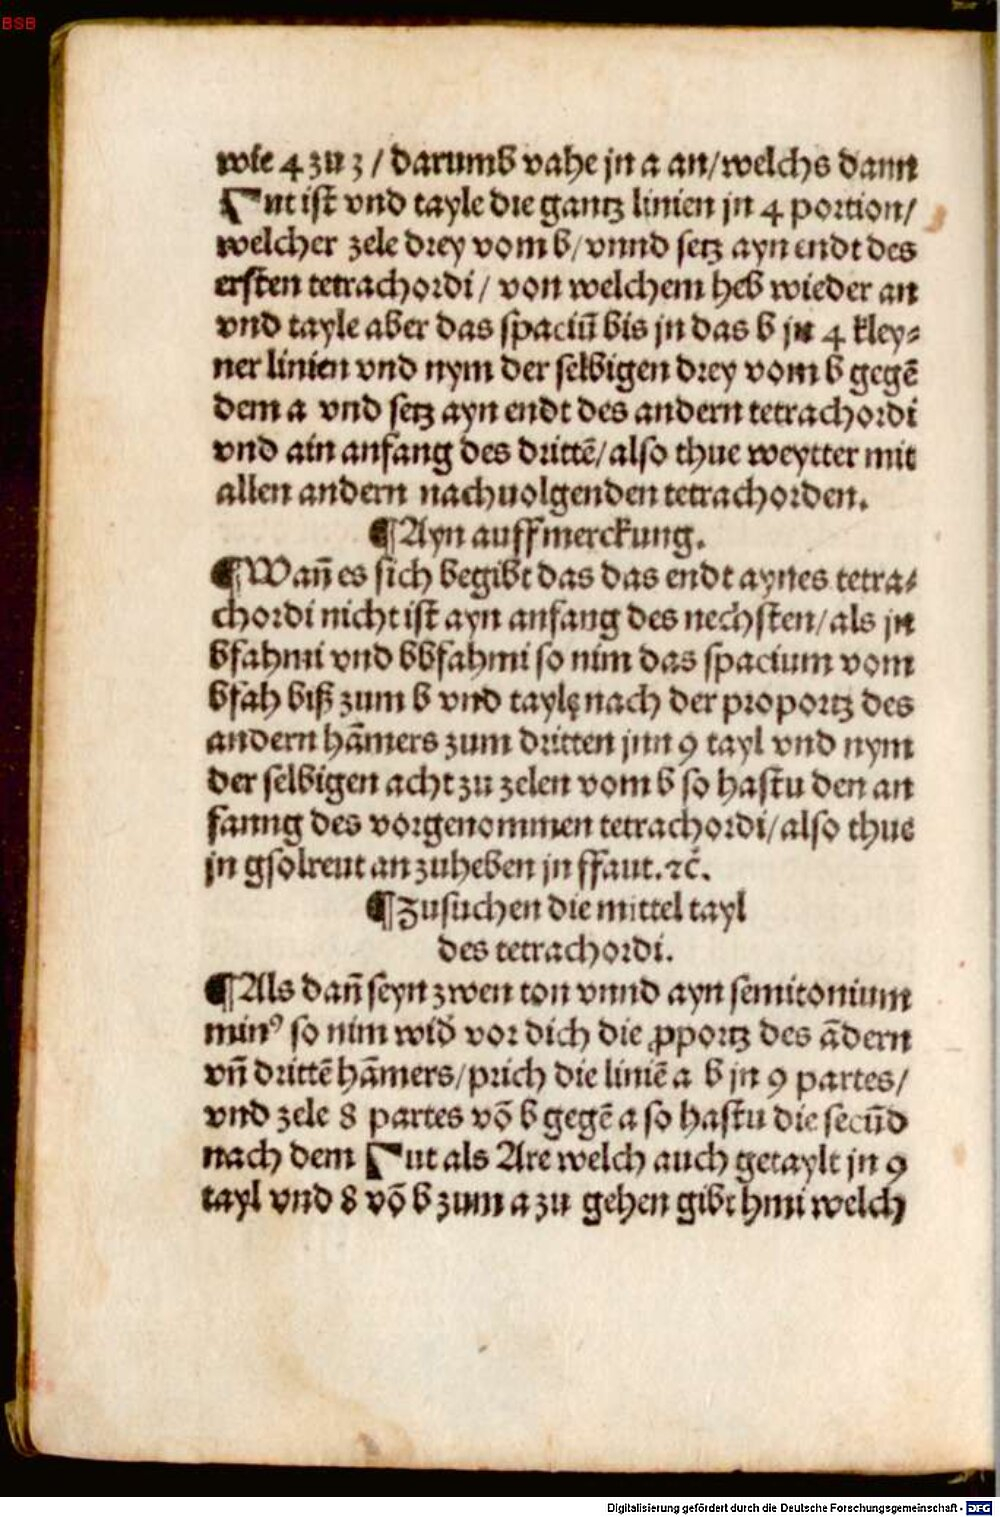 BSB
wie 4 zu 3 / darumb vahe jn a an/welchs dann
Γut ist vnd tayle die gantz linien jn 4 portion/
welcher zele drey vom b/vnnd setz ayn endt des
ersten tetrachordi / von welchem heb wieder an
vnd tayle aber das spaciū bis jn das b jn 4 kley⸗
ner linien vnd nym der selbigen drey vom b gegē
dem a vnd setz ayn endt des andern tetrachordi
vnd ain anfang des drittē/also thue weytter mit
allen andern nachuolgenden tetrachorden.
¶Ayn auffmerckung.
¶Wan̄ es sich begibt das das endt aynes tetra⸗
chordi nicht ist ayn anfang des nechsten/als jn
bfahmi vnd bbfahmi so nim das spacium vom
bfah biß zum b vnd tayle nach der proportz des
andern hām̄ers zum dritten jnn 9 tayl vnd nym
der selbigen acht zu zelen vom b so hastu den an
fanng des vorgenommen tetrachordi/also thue
jn gsolreut anzuheben jn ffaut.ꝛc̄.
¶Zusuchen die mittel tayl
des tetrachordi.
¶Als dan̄ seyn zwen ton vnnd ayn semitonium
minꝰ so nim wid̄ vor dich die ꝓportz des ādern
vn̄ drittē hāmers/prich die liniē a b jn 9 partes/
vnd zele 8 partes vō b gegē a so hastu die secūd
nach dem Γut als Are welch auch getaylt jn 9
tayl vnd 8 vō b zum a zu gehen gibt hmi welch
Digitalisierung gefördert durch die Deutsche Forschungsgemeinschaft - DFG